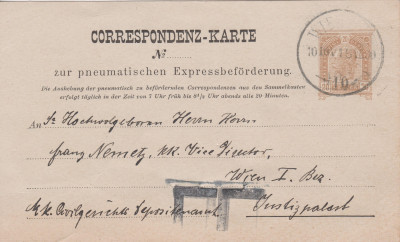 CORRESPONDENZ-KARTE
№
zur pneumatischen Expressbeförderung.
Die Aushebung der pneumatisch zu befördernden Correspondenzen aus den Sammelkasten
erfolgt täglich in der Zeit von 7 Uhr früh bis 9½ Uhr abends alle 20 Minuten.
WIE
An Sr Hochwolgeboren Herrn Herrn
Franz Nemetz, kk. Vice Director,
Wien I. Bez.
kk. Civilgerichts Depositenamt. Justizpalast